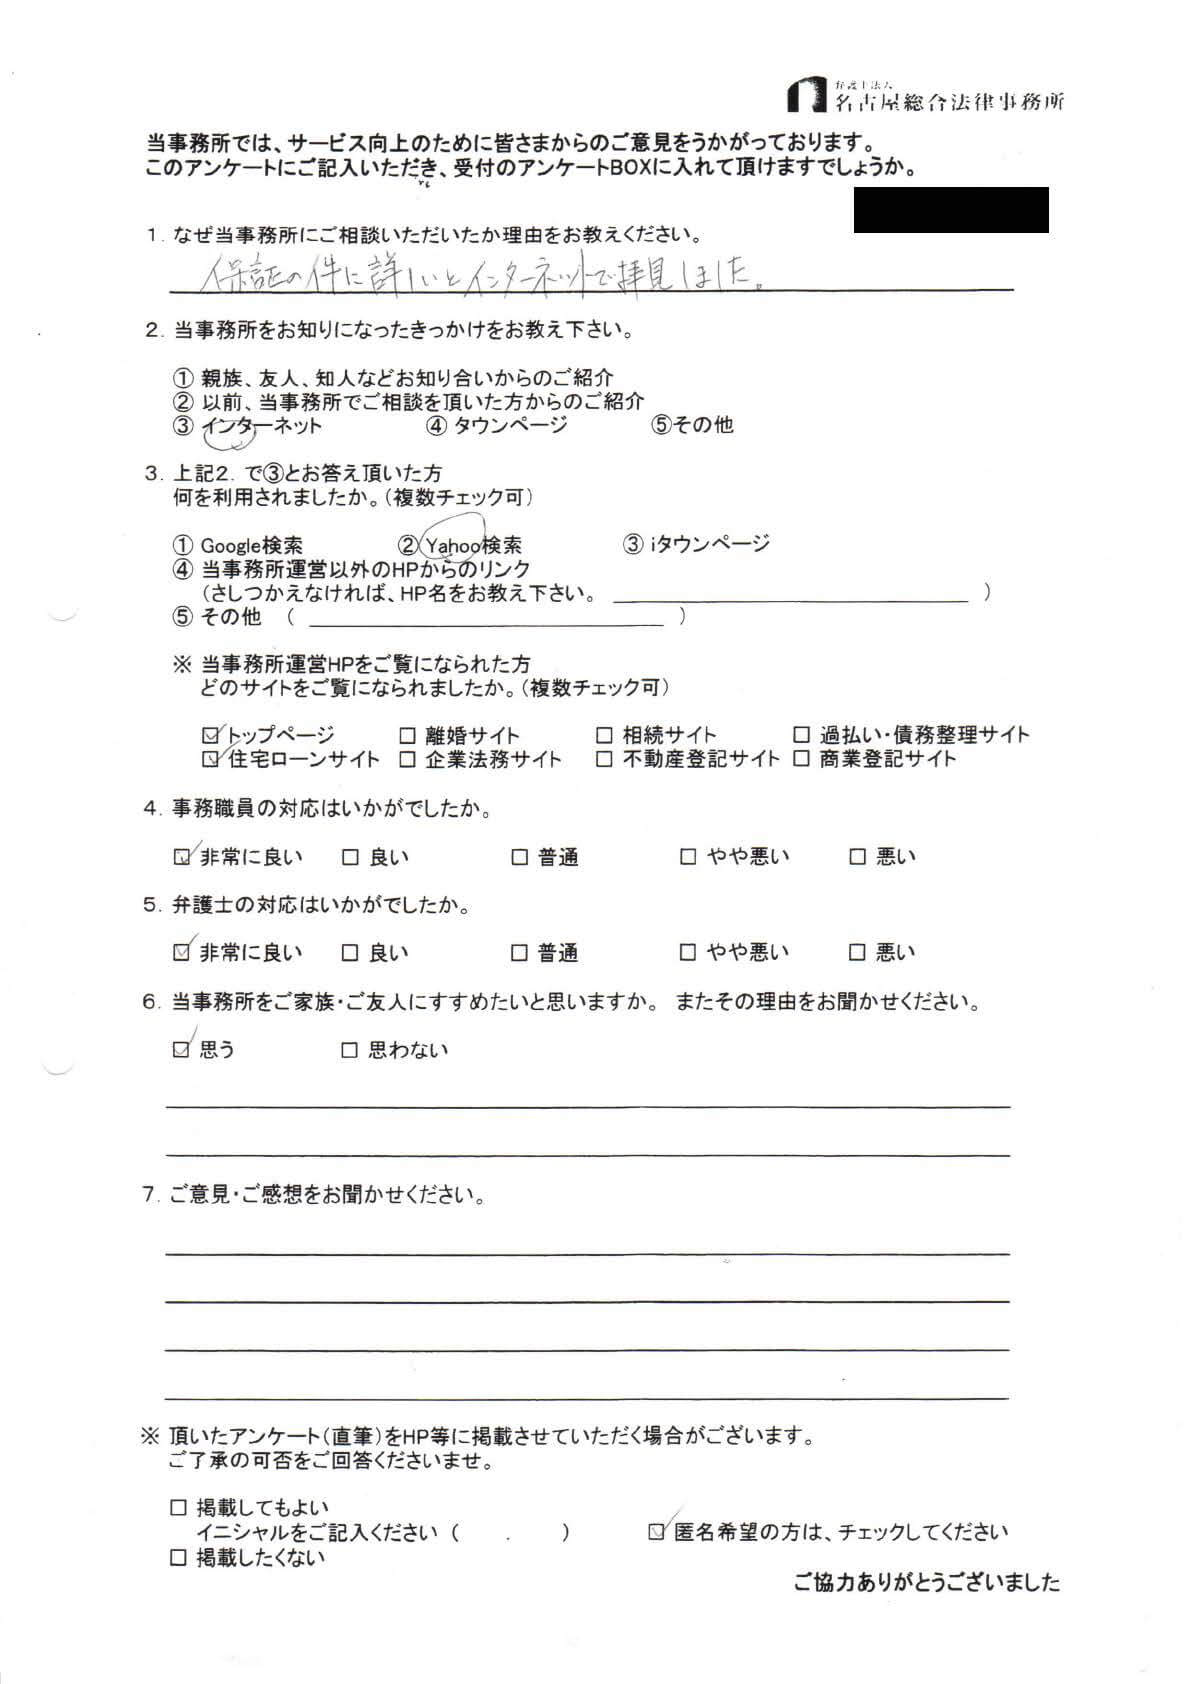 弁護士法人
名古屋総合法律事務所
当事務所では、サービス向上のために皆さまからのご意見をうかがっております。
このアンケートにご記入いただき、受付のアンケートBOXに入れて頂けますでしょうか。
1. なぜ当事務所にご相談いただいたか理由をお教えください。
保証の件に詳しいとインターネットで拝見しました。
2. 当事務所をお知りになったきっかけをお教え下さい。
① 親族、友人、知人などお知り合いからのご紹介
② 以前、当事務所でご相談を頂いた方からのご紹介
③ インターネット ④ タウンページ ⑤その他
3. 上記2. で③とお答え頂いた方
何を利用されましたか。(複数チェック可)
① Google検索 ② Yahoo検索 ③ iタウンページ
④ 当事務所運営以外のHPからのリンク
(さしつかえなければ、HP名をお教え下さい。 )
⑤ その他 ( )
※ 当事務所運営HPをご覧になられた方
どのサイトをご覧になられましたか。(複数チェック可)
☑ トップページ □ 離婚サイト □ 相続サイト □ 過払い・債務整理サイト
☑ 住宅ローンサイト □ 企業法務サイト □ 不動産登記サイト □ 商業登記サイト
4. 事務職員の対応はいかがでしたか。
☑ 非常に良い □ 良い □ 普通 □ やや悪い □ 悪い
5. 弁護士の対応はいかがでしたか。
☑ 非常に良い □ 良い □ 普通 □ やや悪い □ 悪い
6. 当事務所をご家族・ご友人にすすめたいと思いますか。 またその理由をお聞かせください。
☑ 思う □ 思わない
7. ご意見・ご感想をお聞かせください。
※ 頂いたアンケート(直筆)をHP等に掲載させていただく場合がございます。
ご了承の可否をご回答くださいませ。
□ 掲載してもよい
イニシャルをご記入ください ( . ) ☑ 匿名希望の方は、チェックしてください
□ 掲載したくない
ご協力ありがとうございました